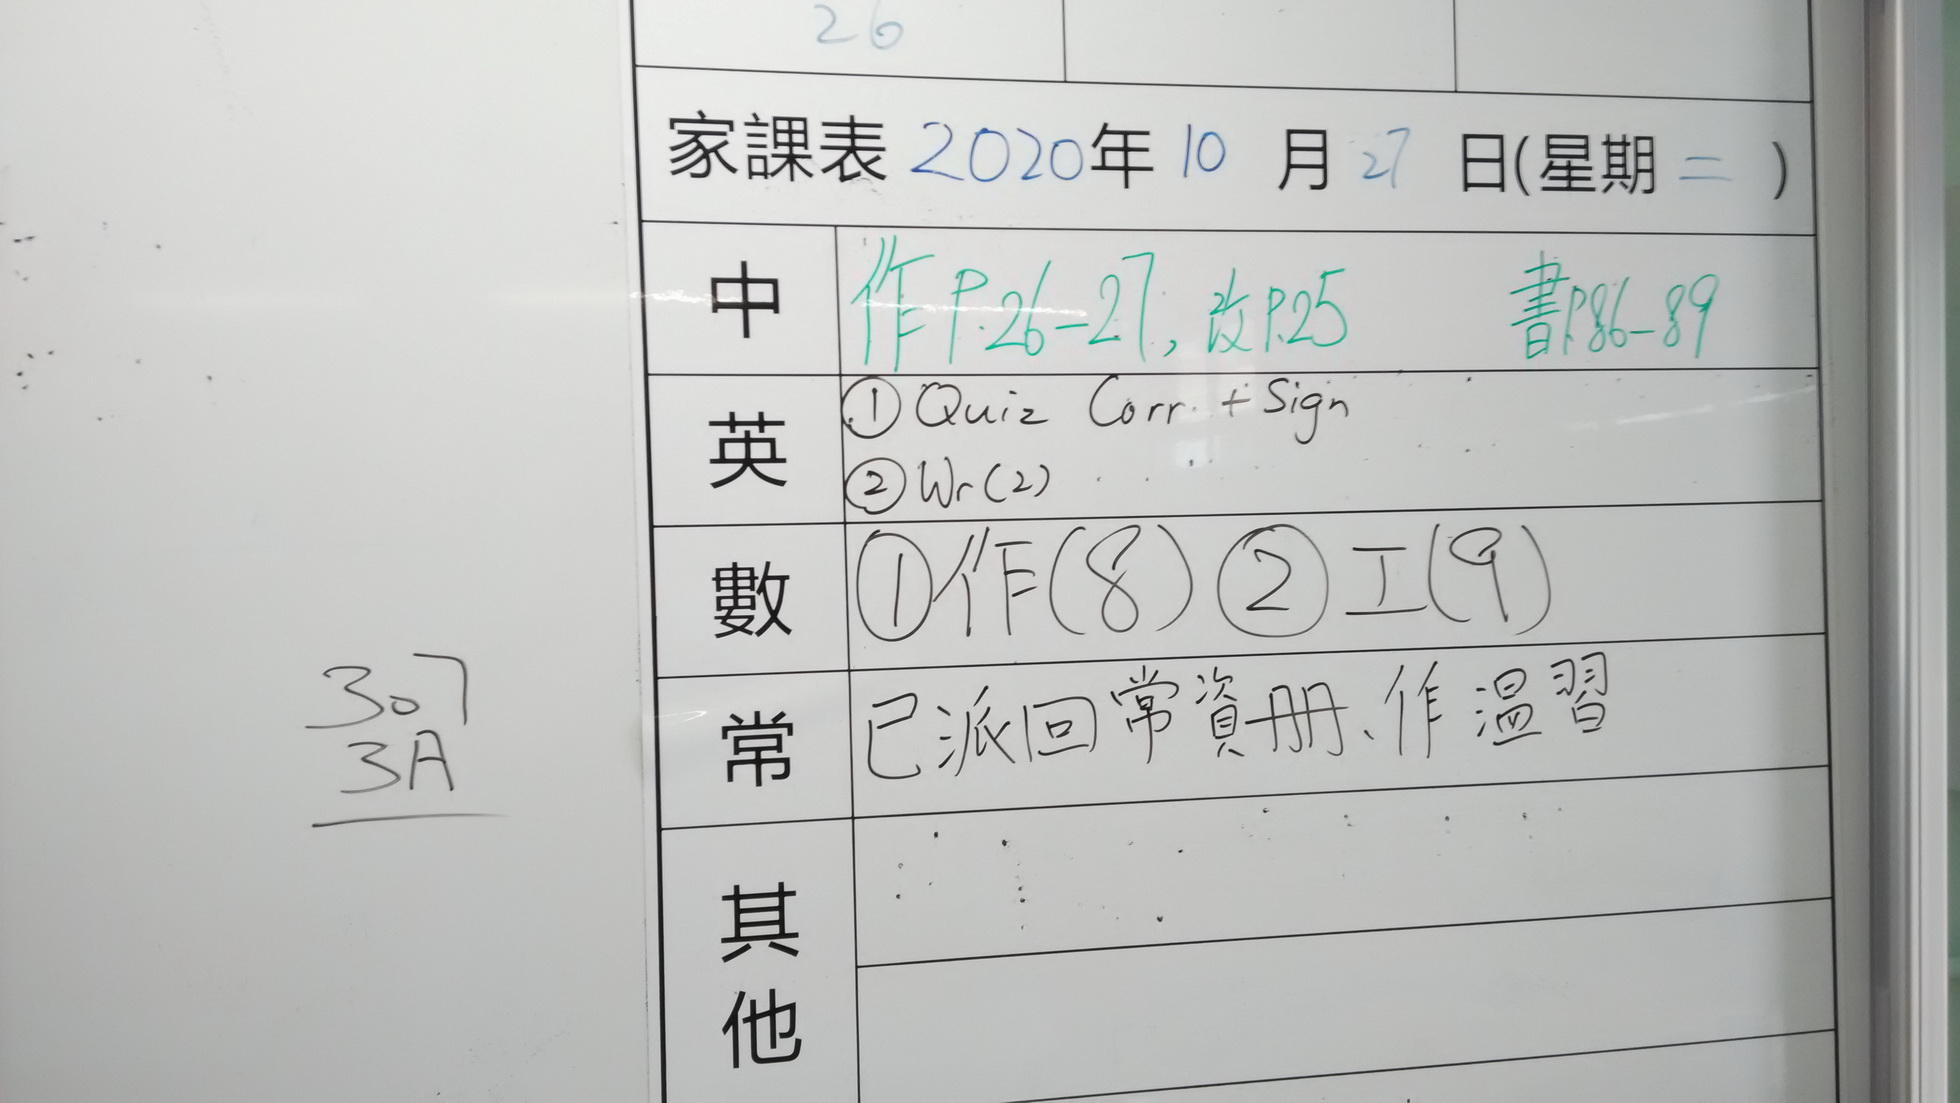 26
家課表 2020年 10 月 27 日(星期 二 )
中 作 P.26-27, 改P.25 書P.86-89
英 ① Quiz Corr. + Sign
② Wr(2)
數 ①作(8) ②工(9)
常 已派回常資册、作溫習
307
3A
其
他